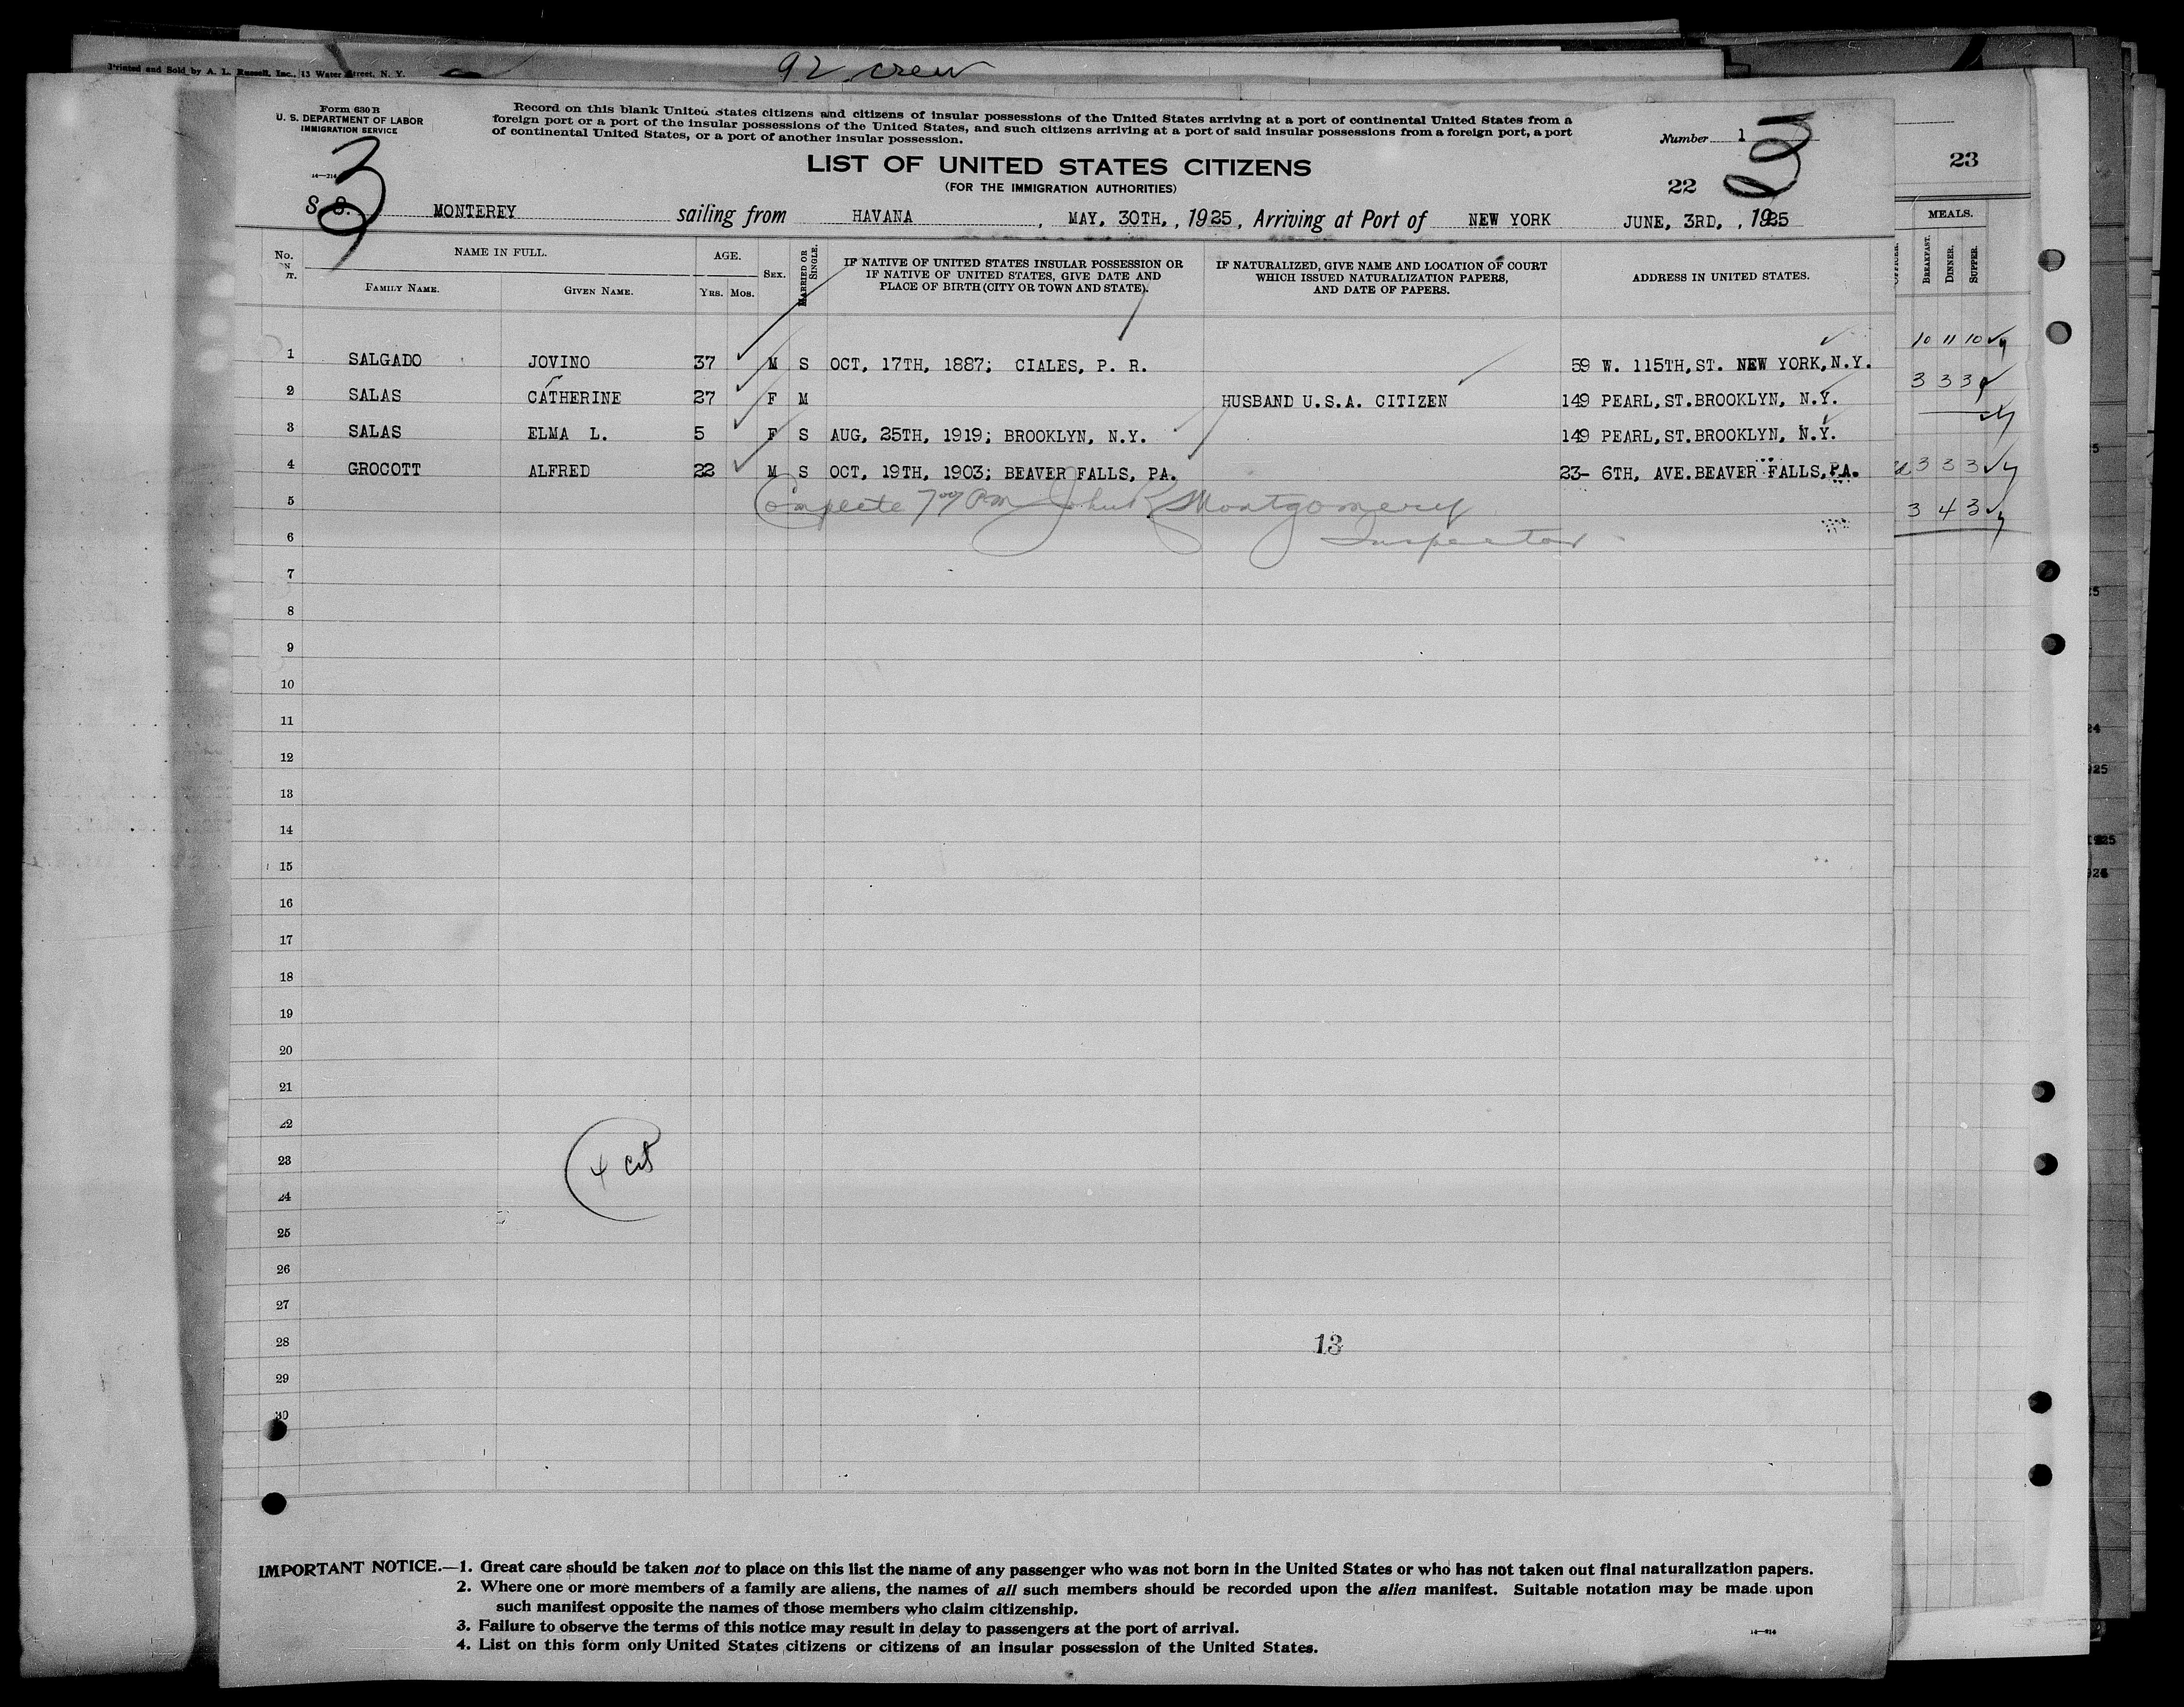 Printed and Sold by A. L. Russell, Inc., 13 Water Street, N. Y.
92 crew
Form 630 B
U. S. DEPARTMENT OF LABOR
IMMIGRATION SERVICE
Record on this blank United States citizens and citizens of insular possessions of the United States arriving at a port of continental United States from a
foreign port or a port of the insular possessions of the United States, and such citizens arriving at a port of said insular possessions from a foreign port, a port
of continental United States, or a port of another insular possession.
Number 1
3
LIST OF UNITED STATES CITIZENS
(FOR THE IMMIGRATION AUTHORITIES)
22
S. S. MONTEREY sailing from HAVANA, MAY, 30TH, , 1925, Arriving at Port of NEW YORK JUNE, 3RD, , 1925
No. NAME IN FULL. AGE. SEX. MARRIED OR SINGLE.
FAMILY NAME. GIVEN NAME. YRS. MOS.
IF NATIVE OF UNITED STATES INSULAR POSSESSION OR
IF NATIVE OF UNITED STATES, GIVE DATE AND
PLACE OF BIRTH (CITY OR TOWN AND STATE).
IF NATURALIZED, GIVE NAME AND LOCATION OF COURT
WHICH ISSUED NATURALIZATION PAPERS,
AND DATE OF PAPERS.
ADDRESS IN UNITED STATES.
1 SALGADO JOVINO 37 M S OCT, 17TH, 1887; CIALES, P. R. 59 W. 115TH, ST. NEW YORK, N.Y.
2 SALAS CATHERINE 27 F M HUSBAND U.S.A. CITIZEN 149 PEARL, ST. BROOKLYN, N.Y.
3 SALAS ELMA L. 5 F S AUG, 25TH, 1919; BROOKLYN, N.Y. 149 PEARL, ST. BROOKLYN, N.Y.
4 GROCOTT ALFRED 22 M S OCT, 19TH, 1903; BEAVER FALLS, PA. 23- 6TH, AVE. BEAVER FALLS, PA.
5 Complete 7 PM John R Montgomery
6 Inspector
7
8
9
10
11
12
13
14
15
16
17
18
19
20
21
22
23
4 cit
24
25
26
27
28
13
29
30
IMPORTANT NOTICE.—1. Great care should be taken not to place on this list the name of any passenger who was not born in the United States or who has not taken out final naturalization papers.
2. Where one or more members of a family are aliens, the names of all such members should be recorded upon the alien manifest. Suitable notation may be made upon
such manifest opposite the names of those members who claim citizenship.
3. Failure to observe the terms of this notice may result in delay to passengers at the port of arrival.
4. List on this form only United States citizens or citizens of an insular possession of the United States.
23
MEALS.
BREAKFAST. DINNER. SUPPER.
10 11 10
3 3 3
3 3 3
3 4 3